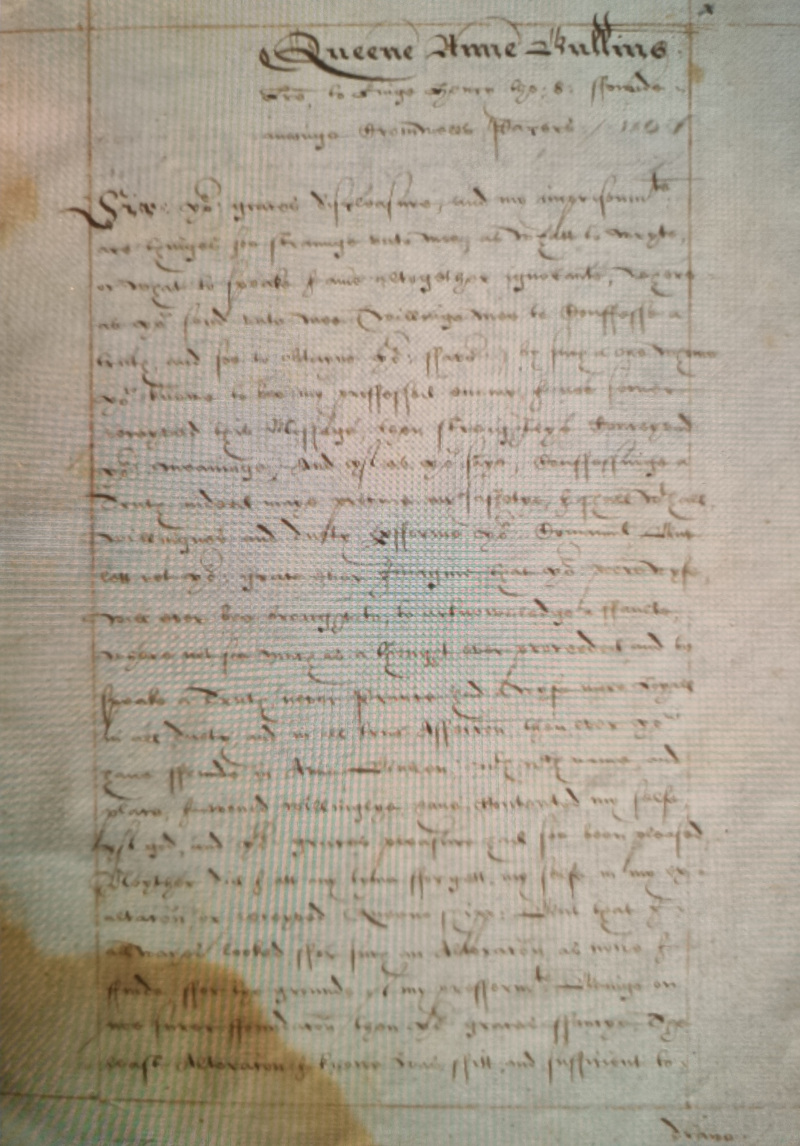 Queene Anne Bullins
lre, to Kinge Henry the: 8: ffounde
amonge Cromwells Papers /
Sir: yor graces displeasure, and my imprisonmts
are thinges soe strainge unto mee, as what to wryte,
or what to speake I ame altogether ignorante, Where
as yor send unto mee Willinge mee to Conffesse a
truth, and soe to obtayne yor: ffavor: by such a one whome
yor knowe to bee my proffessed enemy, I noe sooner
receyved this Message, then
yor meaninge, And yf, as yor saye, Conffessinge a
Truth indeed maye procure my saffetye, I shall wth all
willingnes and duety perfforme yor Command But
lett not yor: grace ever Imagine that yor poore wyfe,
will ever bee brought to, to acknowledge a ffaulte,
where not soe much as a thought ever proceeded and to
speake a Truth never Prince had Wyfe more loyall
in all duety and in all true Affection, then ever yor
have ffounde in Anne Bullen, wth wch name, and
place, I could willinglye have Contented my selfe,
yf god, and yor graces pleasure had soe been pleased
Neyther did I att any tyme ffor gett, my selfe in my ex-
altation or receyved Queene shipp; But that I
allwayes looked ffor such an Alteration as nowe I
ffinde, ffor the grounde of my prefferrmt Beinge on
noe surer ffoundation then yor graces ffancye, The
least Alteration I knowe was ffitt, and sufficient to
drawe